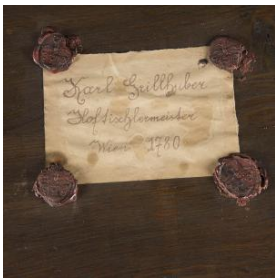 Karl Grillhuber
Hoftischlermeister
Wien 1780